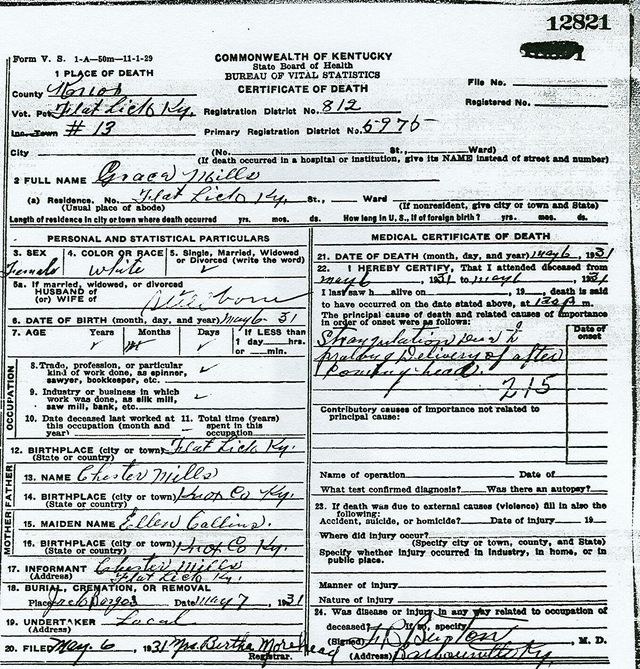 12821
Form V. S. 1-A—50m—11-1-29
COMMONWEALTH OF KENTUCKY
State Board of Health
BUREAU OF VITAL STATISTICS
CERTIFICATE OF DEATH
File No.
Registered No.
1 PLACE OF DEATH
County Knox
Vot. Pct. Flat Lick Ky. Registration District No. 812
Inc. Town # 13 Primary Registration District No. 5975
City (No. St., Ward)
(If death occurred in a hospital or institution, give its NAME instead of street and number)
2 FULL NAME Grace Mills
(a) Residence. No. Flat Lick Ky. St., Ward
(Usual place of abode) (If nonresident, give city or town and State)
Length of residence in city or town where death occurred yrs. mos. ds. How long in U. S., if of foreign birth? yrs. mos. ds.
PERSONAL AND STATISTICAL PARTICULARS
3. SEX Female
4. COLOR OR RACE White
5. Single, Married, Widowed or Divorced (write the word)
5a. If married, widowed, or divorced
HUSBAND of
(or) WIFE of Stillborn
6. DATE OF BIRTH (month, day, and year) May 6 31
7. AGE Years Months Days If LESS than
1 day hrs.
or min.
OCCUPATION
8. Trade, profession, or particular
kind of work done, as spinner,
sawyer, bookkeeper, etc.
9. Industry or business in which
work was done, as silk mill,
saw mill, bank, etc.
10. Date deceased last worked at
this occupation (month and
year)
11. Total time (years)
spent in this
occupation
12. BIRTHPLACE (city or town) Flat Lick Ky.
(State or country)
FATHER
13. NAME Chester Mills
14. BIRTHPLACE (city or town) Knox Co Ky.
(State or country)
MOTHER
15. MAIDEN NAME Ellen Collins.
16. BIRTHPLACE (city or town) Knox Co Ky.
(State or country)
17. INFORMANT Chester Mills
(Address) Flat Lick Ky.
18. BURIAL, CREMATION, OR REMOVAL
Place Date May 7, 1931
19. UNDERTAKER Local
(Address)
20. FILED May. 6, 1931 Mrs. Bertha Morehead
Registrar.
MEDICAL CERTIFICATE OF DEATH
21. DATE OF DEATH (month, day, and year) May 6, 1931
22. I HEREBY CERTIFY, That I attended deceased from
May 6, 1931 to May 6, 1931
I last saw h alive on , 19 , death is said
to have occurred on the date stated above, at m.
The principal cause of death and related causes of importance
in order of onset were as follows:
Date of
onset
Strangulation due to
prolong delivery of after
coming head.
215
Contributory causes of importance not related to
principal cause:
Name of operation Date of
What test confirmed diagnosis? Was there an autopsy?
23. If death was due to external causes (violence) fill in also the
following:
Accident, suicide, or homicide? Date of injury 19
Where did injury occur?
(Specify city or town, county, and State)
Specify whether injury occurred in industry, in home, or in
public place.
Manner of injury
Nature of injury
24. Was disease or injury in any way related to occupation of
deceased? If so, specify
(Signed) Burton M. D.
(Address) Barbourville Ky